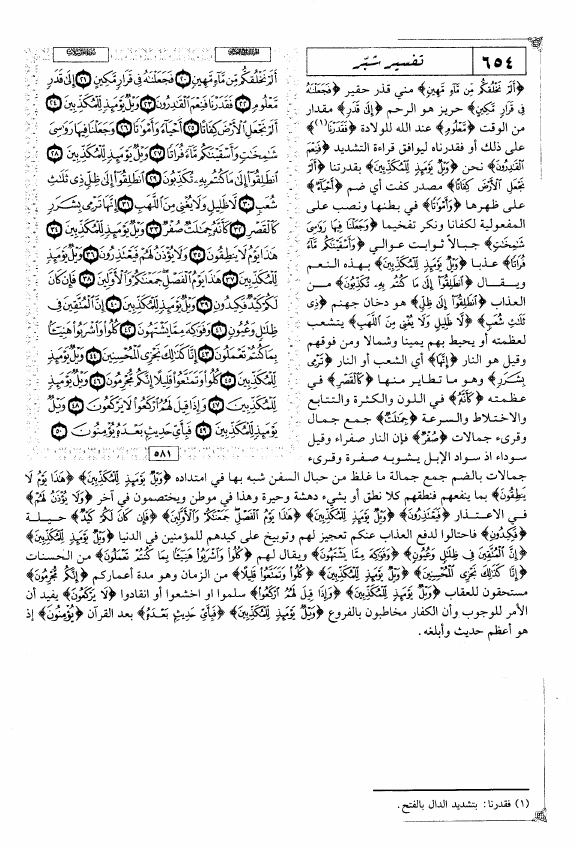 ٦٥٤
تفسير شبّر
﴿أَلَمْ نَخْلُقكُّم مِّن مَّآءٍ مَّهِينٍ﴾ مني قذر حقير ﴿فَجَعَلْنَٰهُ
فِى قَرَارٍ مَّكِينٍ﴾ حريز هو الرحم ﴿إِلَىٰ قَدَرٍ﴾ مقدار
من الوقت ﴿مَّعْلُومٍ﴾ عند الله للولادة ﴿فَقَدَرْنَا﴾(١)
على ذلك أو فقدرناه ليوافق قراءة التشديد ﴿فَنِعْمَ
الْقَٰدِرُونَ﴾ نحن ﴿وَيْلٌ يَوْمَئِذٍ لِّلْمُكَذِّبِينَ﴾ بقدرتنا ﴿أَلَمْ
نَجْعَلِ الْأَرْضَ كِفَاتًا﴾ مصدر كفت أي ضم ﴿أَحْيَآءً﴾
على ظهرها ﴿وَأَمْوَٰتًا﴾ في بطنها ونصب على
المفعولية لكفاتا ونكر تفخيما ﴿وَجَعَلْنَا فِيهَا رَوَٰسِىَ
شَٰمِخَٰتٍ﴾ جبالاً ثوابت عوالي ﴿وَأَسْقَيْنَٰكُم مَّآءً
فُرَاتًا﴾ عذبا ﴿وَيْلٌ يَوْمَئِذٍ لِّلْمُكَذِّبِينَ﴾ بهذه النعم
ويقال ﴿انطَلِقُوٓا۟ إِلَىٰ مَا كُنتُم بِهِۦ تُكَذِّبُونَ﴾ من
العذاب ﴿انطَلِقُوٓا۟ إِلَىٰ ظِلٍّ﴾ هو دخان جهنم ﴿ذِى
ثَلَٰثِ شُعَبٍ﴾ ﴿لَّا ظَلِيلٍ وَلَا يُغْنِى مِنَ اللَّهَبِ﴾ يتشعب
لعظمته أو يحيط بهم يمينا وشمالا ومن فوقهم
وقيل هو النار ﴿إِنَّهَا﴾ أي الشعب أو النار ﴿تَرْمِى
بِشَرَرٍ﴾ وهو ما تطاير منها ﴿كَالْقَصْرِ﴾ في
عظمته ﴿كَأَنَّهُۥ﴾ في اللون والكثرة والتتابع
والاختلاط والسرعة ﴿جِمَٰلَتٌ﴾ جمع جمال
وقرىء جمالات ﴿صُفْرٌ﴾ فإن النار صفراء وقيل
سوداء اذ سواد الإبل يشوبه صفرة وقرىء
أَلَمْ نَخْلُقكُّم مِّن مَّآءٍ مَّهِينٍ ٢٠ فَجَعَلْنَٰهُ فِى قَرَارٍ مَّكِينٍ ٢١ إِلَىٰ قَدَرٍ
مَّعْلُومٍ ٢٢ فَقَدَرْنَا فَنِعْمَ الْقَٰدِرُونَ ٢٣ وَيْلٌ يَوْمَئِذٍ لِّلْمُكَذِّبِينَ ٢٤
أَلَمْ نَجْعَلِ الْأَرْضَ كِفَاتًا ٢٥ أَحْيَآءً وَأَمْوَٰتًا ٢٦ وَجَعَلْنَا فِيهَا رَوَٰسِىَ
شَٰمِخَٰتٍ وَأَسْقَيْنَٰكُم مَّآءً فُرَاتًا ٢٧ وَيْلٌ يَوْمَئِذٍ لِّلْمُكَذِّبِينَ ٢٨
انطَلِقُوٓا۟ إِلَىٰ مَا كُنتُم بِهِۦ تُكَذِّبُونَ ٢٩ انطَلِقُوٓا۟ إِلَىٰ ظِلٍّ ذِى ثَلَٰثِ
شُعَبٍ ٣٠ لَّا ظَلِيلٍ وَلَا يُغْنِى مِنَ اللَّهَبِ ٣١ إِنَّهَا تَرْمِى بِشَرَرٍ
كَالْقَصْرِ ٣٢ كَأَنَّهُۥ جِمَٰلَتٌ صُفْرٌ ٣٣ وَيْلٌ يَوْمَئِذٍ لِّلْمُكَذِّبِينَ ٣٤
هَٰذَا يَوْمُ لَا يَنطِقُونَ ٣٥ وَلَا يُؤْذَنُ لَهُمْ فَيَعْتَذِرُونَ ٣٦ وَيْلٌ يَوْمَئِذٍ
لِّلْمُكَذِّبِينَ ٣٧ هَٰذَا يَوْمُ الْفَصْلِ جَمَعْنَٰكُمْ وَالْأَوَّلِينَ ٣٨ فَإِن كَانَ
لَكُمْ كَيْدٌ فَكِيدُونِ ٣٩ وَيْلٌ يَوْمَئِذٍ لِّلْمُكَذِّبِينَ ٤٠ إِنَّ الْمُتَّقِينَ فِى
ظِلَٰلٍ وَعُيُونٍ ٤١ وَفَوَٰكِهَ مِمَّا يَشْتَهُونَ ٤٢ كُلُوا۟ وَاشْرَبُوا۟ هَنِيٓـًٔا
بِمَا كُنتُمْ تَعْمَلُونَ ٤٣ إِنَّا كَذَٰلِكَ نَجْزِى الْمُحْسِنِينَ ٤٤ وَيْلٌ يَوْمَئِذٍ
لِّلْمُكَذِّبِينَ ٤٥ كُلُوا۟ وَتَمَتَّعُوا۟ قَلِيلًا إِنَّكُم مُّجْرِمُونَ ٤٦ وَيْلٌ يَوْمَئِذٍ
لِّلْمُكَذِّبِينَ ٤٧ وَإِذَا قِيلَ لَهُمُ ارْكَعُوا۟ لَا يَرْكَعُونَ ٤٨ وَيْلٌ
يَوْمَئِذٍ لِّلْمُكَذِّبِينَ ٤٩ فَبِأَىِّ حَدِيثٍۭ بَعْدَهُۥ يُؤْمِنُونَ ٥٠
٥٨١
جمالات بالضم جمع جمالة ما غلظ من حبال السفن شبه بها في امتداده ﴿وَيْلٌ يَوْمَئِذٍ لِّلْمُكَذِّبِينَ﴾ ﴿هَٰذَا يَوْمُ لَا
يَنطِقُونَ﴾ بما ينفعهم فنطقهم كلا نطق أو بشيء دهشة وحيرة وهذا في موطن ويختصمون في آخر ﴿وَلَا يُؤْذَنُ لَهُمْ﴾
في الاعتذار ﴿فَيَعْتَذِرُونَ﴾ ﴿وَيْلٌ يَوْمَئِذٍ لِّلْمُكَذِّبِينَ﴾ ﴿هَٰذَا يَوْمُ الْفَصْلِ جَمَعْنَٰكُمْ وَالْأَوَّلِينَ﴾ ﴿فَإِن كَانَ لَكُمْ كَيْدٌ﴾ حيلة
﴿فَكِيدُونِ﴾ فاحتالوا لدفع العذاب عنكم تعجيز لهم وتوبيخ على كيدهم للمؤمنين في الدنيا ﴿وَيْلٌ يَوْمَئِذٍ لِّلْمُكَذِّبِينَ﴾
﴿إِنَّ الْمُتَّقِينَ فِى ظِلَٰلٍ وَعُيُونٍ﴾ ﴿وَفَوَٰكِهَ مِمَّا يَشْتَهُونَ﴾ ويقال لهم ﴿كُلُوا۟ وَاشْرَبُوا۟ هَنِيٓـًٔا بِمَا كُنتُمْ تَعْمَلُونَ﴾ من الحسنات
﴿إِنَّا كَذَٰلِكَ نَجْزِى الْمُحْسِنِينَ﴾ ﴿وَيْلٌ يَوْمَئِذٍ لِّلْمُكَذِّبِينَ﴾ ﴿كُلُوا۟ وَتَمَتَّعُوا۟ قَلِيلًا﴾ من الزمان وهو مدة أعماركم ﴿إِنَّكُم مُّجْرِمُونَ﴾
مستحقون للعقاب ﴿وَيْلٌ يَوْمَئِذٍ لِّلْمُكَذِّبِينَ﴾ ﴿وَإِذَا قِيلَ لَهُمُ ارْكَعُوا۟﴾ سلموا او اخشعوا أو انقادوا ﴿لَا يَرْكَعُونَ﴾ يفيد أن
الأمر للوجوب وأن الكفار مخاطبون بالفروع ﴿وَيْلٌ يَوْمَئِذٍ لِّلْمُكَذِّبِينَ﴾ ﴿فَبِأَىِّ حَدِيثٍۭ بَعْدَهُۥ﴾ بعد القرآن ﴿يُؤْمِنُونَ﴾ إذ
هو أعظم حديث وأبلغه.
(١) فقدرنا: بتشديد الدال بالفتح.